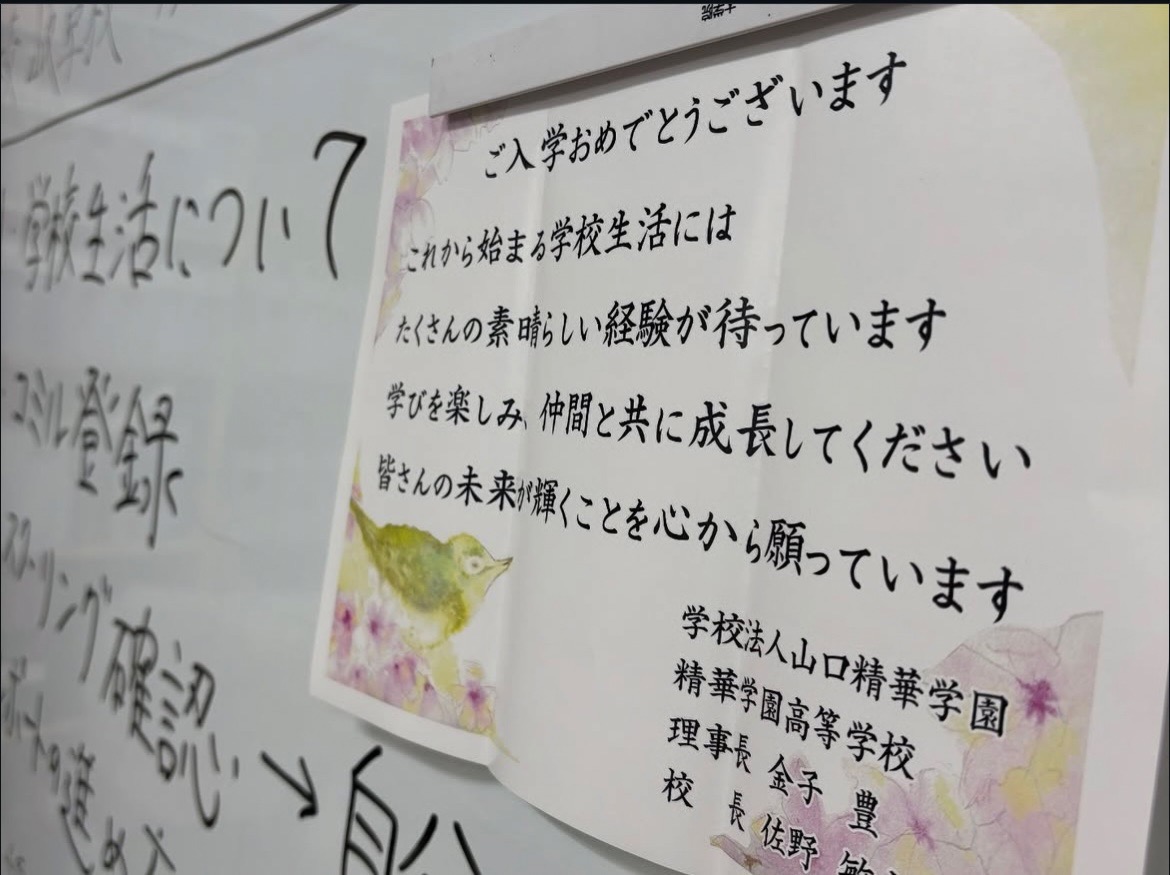 学校生活について
コミル登録
スクーリング確認
レポートの進め方
ご入学おめでとうございます
これから始まる学校生活には
たくさんの素晴らしい経験が待っています
学びを楽しみ、仲間と共に成長してください
皆さんの未来が輝くことを心から願っています
学校法人山口精華学園
精華学園高等学校
理事長 金子 豊
校 長 佐野